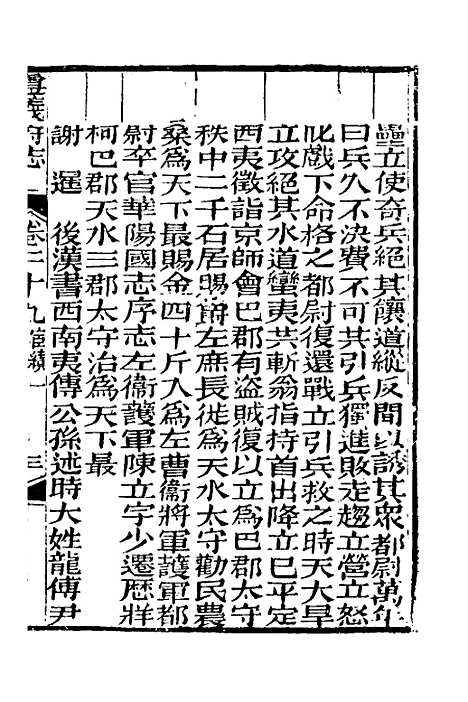 壘立使奇兵絕其饟道縱反間以誘其衆都尉萬年
曰兵久不決費不可共引兵獨進敗走趨立營立怒
叱戲下命格之都尉復還戰立引兵救之時天大旱
立攻絕其水道蠻夷共斬翁指持首出降立已平定
西夷徵詣京師會巴郡有盜賊復以立爲巴郡太守
秩中二千石居賜爵左庶長徙爲天水太守勸民農
桑爲天下最賜金四十斤入爲左曹衞將軍護軍都
尉卒官華陽國志序志左衞護軍陳立字少遷歷牂
柯巴郡天水三郡太守治爲天下最
謝暹　後漢書西南夷傳公孫述時大姓龍傅尹
遵義府志　卷二十九宦績一　三